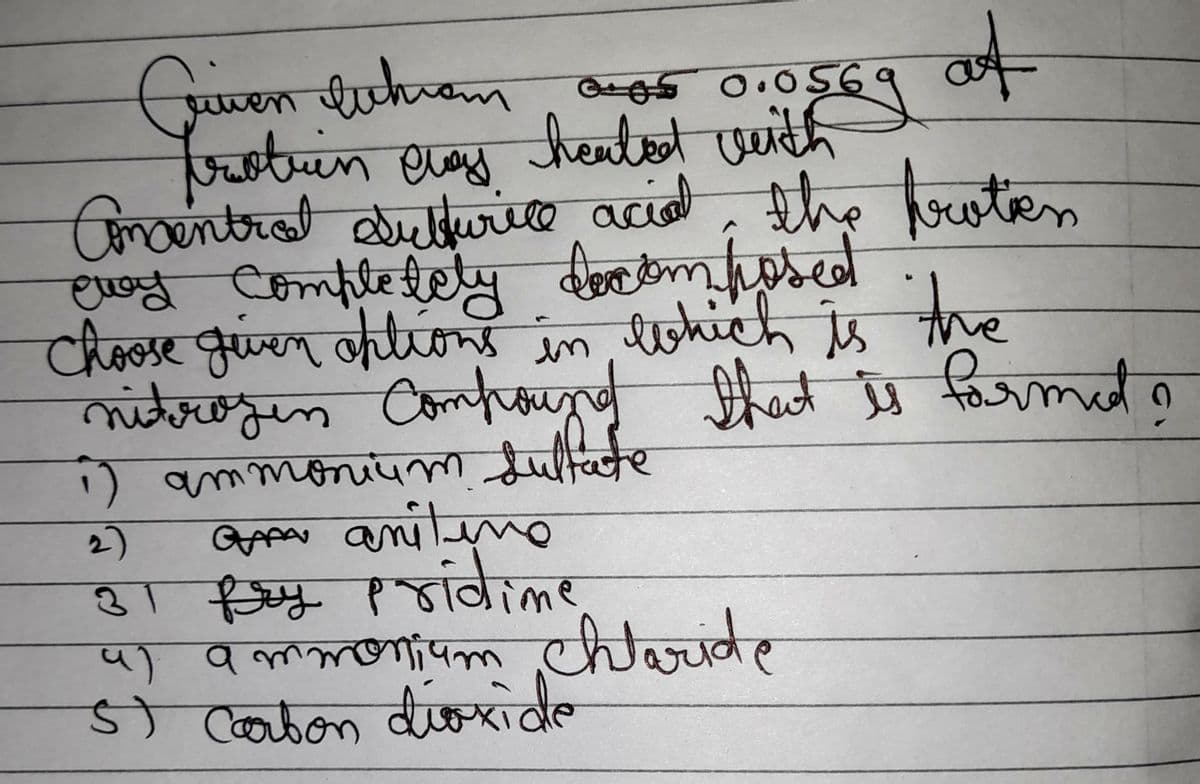 Given when 0.05 0.056g of
protein was heated with
Concentred sulfurice acid, the protien
was completely decomposed.
Choose given options in which is the
nitrogen Compound that is formed?
i) ammonium sulfate
2) aniline
3) pridime
4) ammonium chlaride
5) Carbon dioxide